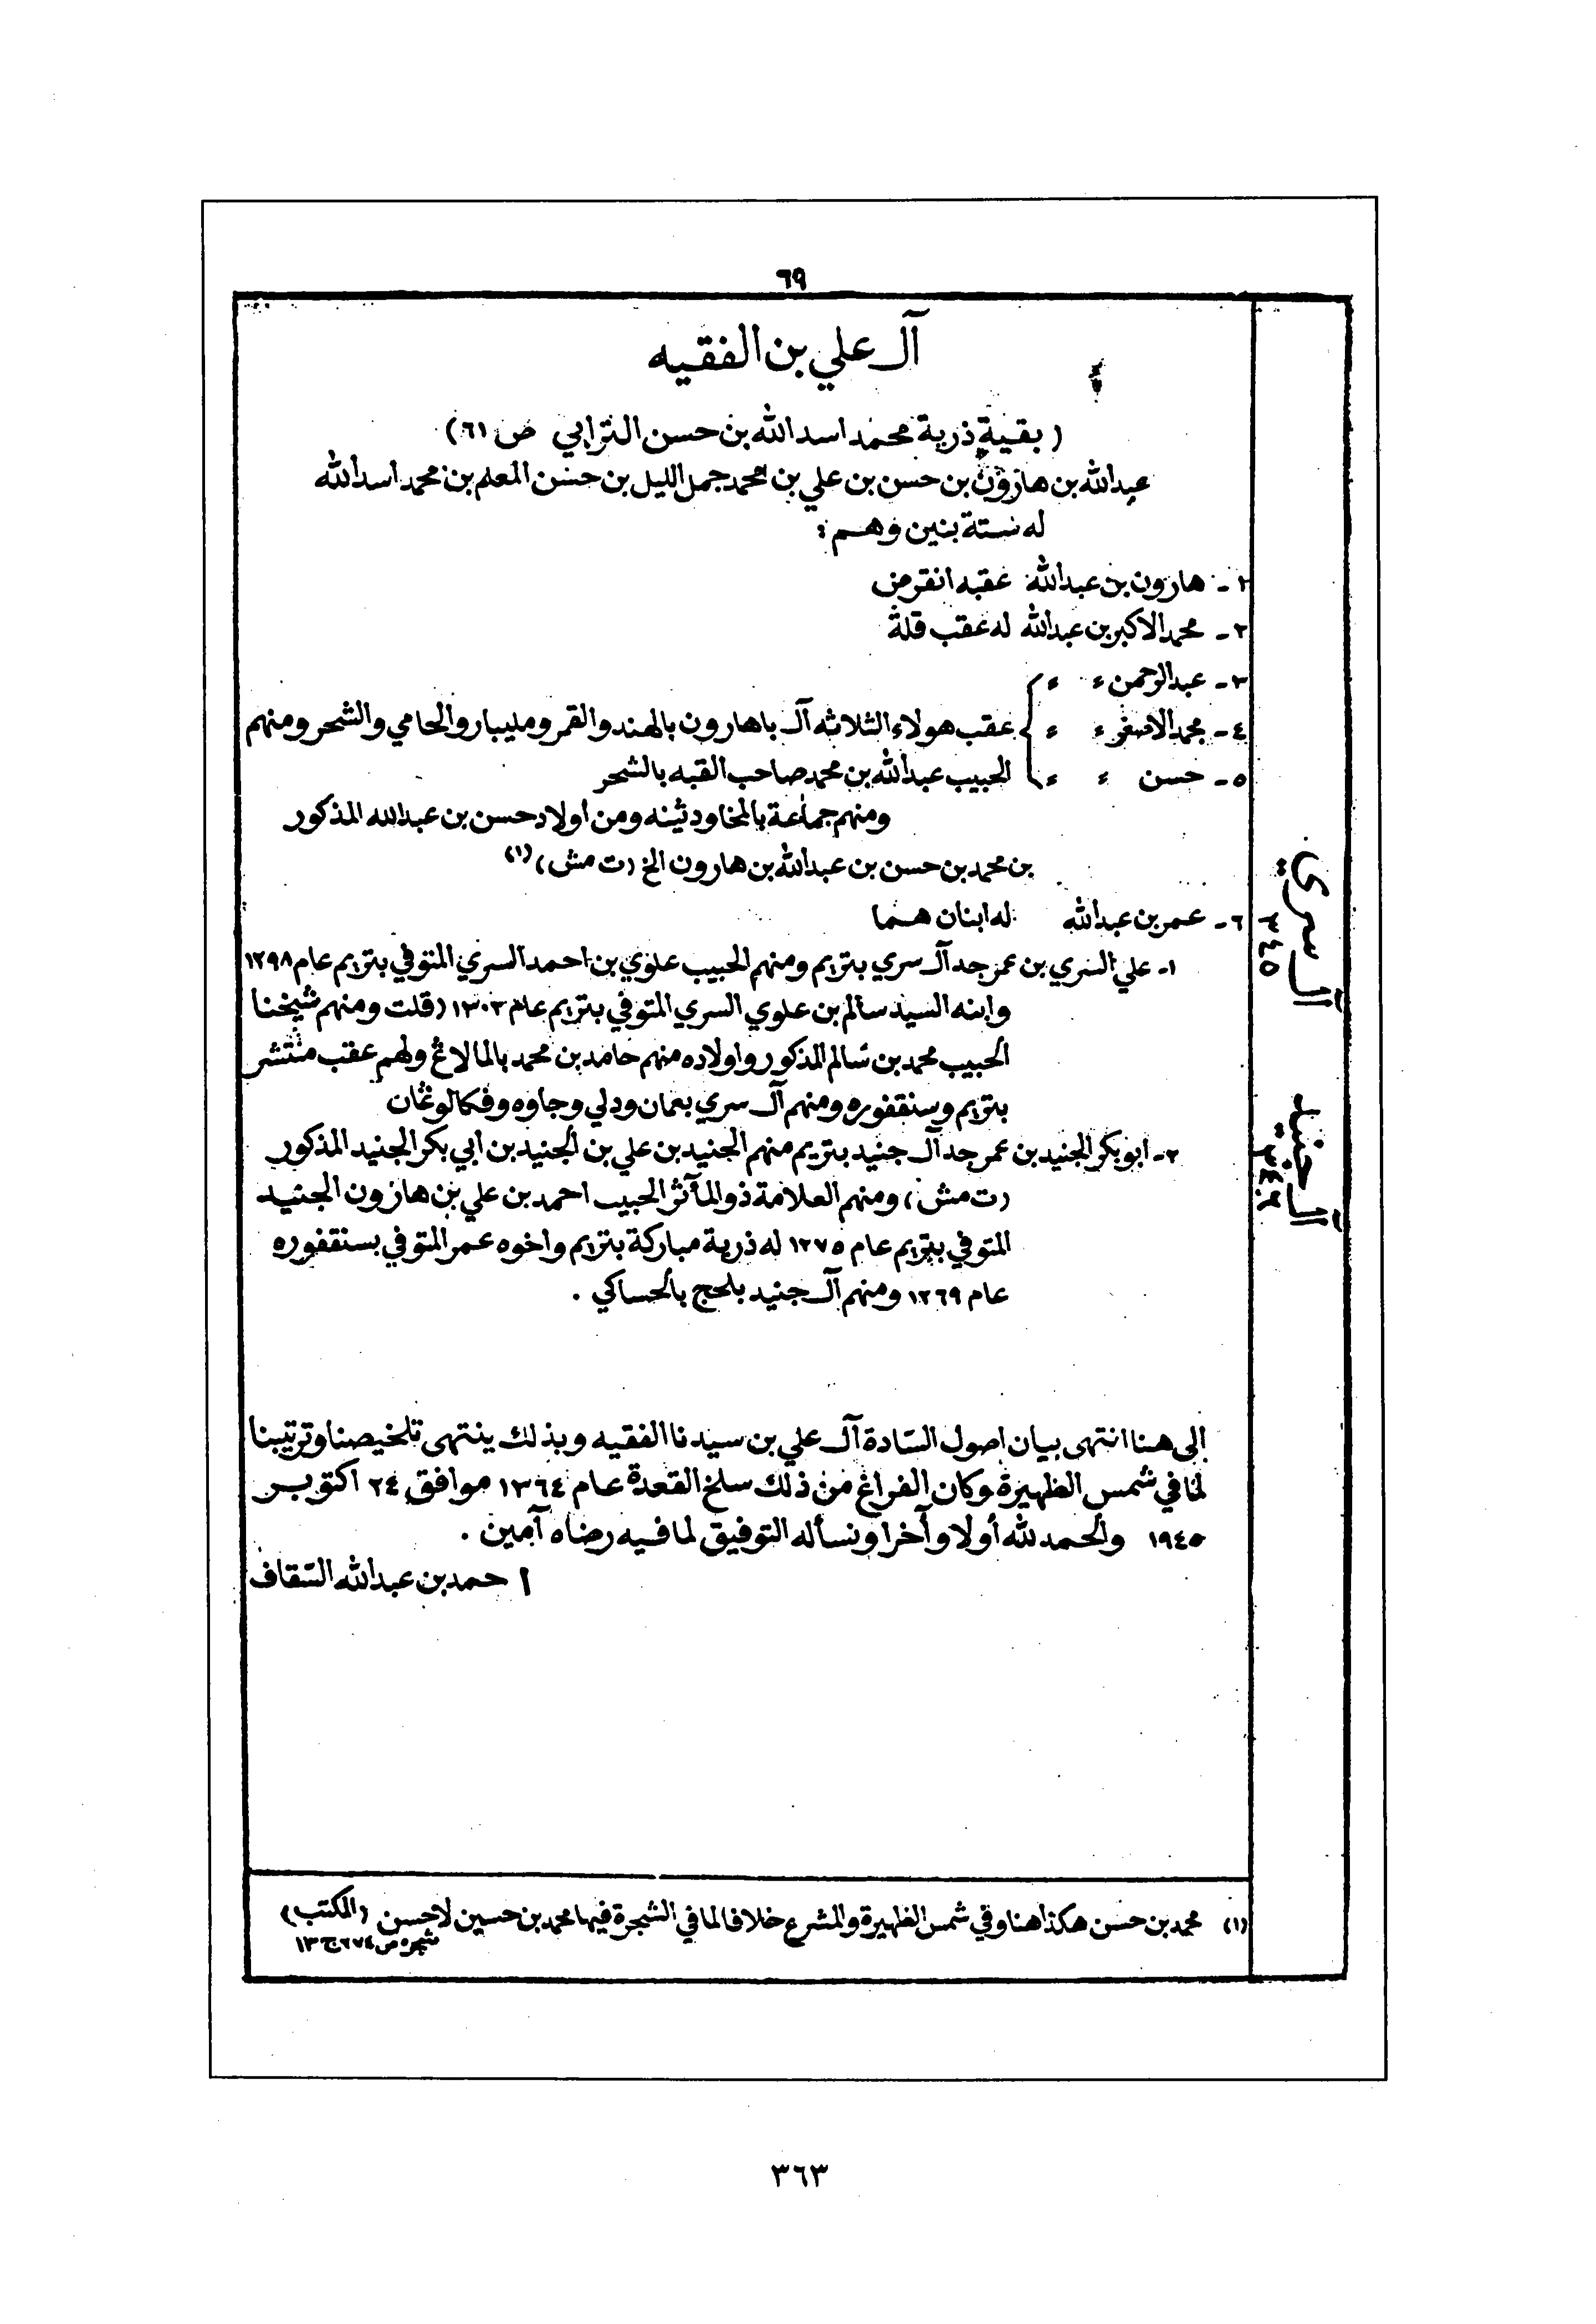 ٦٩
آل علي بن الفقيه
(بقية ذرية محمد اسد الله بن حسن الترابي ص ٦١)
عبدالله بن هارون بن حسن بن علي بن محمد جمل الليل بن حسن المعلم بن محمد اسد الله
له ستة بنين وهم:
١- هارون بن عبدالله عقبه انقرض
٢- محمد الاكبر بن عبدالله له عقب قلة
٣- عبدالرحمن ، ،
٤- محمد الاصغر ، ، عقب هولاء الثلاثه آل باهارون بالهند والقمر ومليبار والحامي والشحر ومنهم
٥- حسن ، ، الحبيب عبدالله بن محمد صاحب القبه بالشحر
ومنهم جماعة بالمخا ودثينه ومن اولاد حسن بن عبدالله المذكور
بن محمد بن حسن بن عبدالله بن هارون الخ (ت مش) (١)
٦- عمر بن عبدالله له ابنان هما
١- علي السري بن عمر جد آل سري بتريم ومنهم الحبيب علوي بن احمد السري المتوفي بتريم عام ١٢٩٨
وابنه السيد سالم بن علوي السري المتوفي بتريم عام ١٣٠٣ (قلت ومنهم شيخنا
الحبيب محمد بن سالم المذكور واولاده منهم حامد بن محمد بالمالاغ ولهم عقب منتشر
بتريم وسنقفوره ومنهم آل سري بعمان ودلي وجاوه وفكالوغان
٢- ابوبكر الجنيد بن عمر جد آل جنيد بتريم منهم الجنيد بن علي بن الجنيد بن ابي بكر الجنيد المذكور
(ت مش) ومنهم العلامة ذو المآثر الحبيب احمد بن علي بن هارون الجنيد
المتوفي بتريم عام ١٢٧٥ له ذرية مباركة بتريم واخوه عمر المتوفي بسنقفوره
عام ١٢٦٩ ومنهم آل جنيد بلحج بالحساكي .
إلى هنا انتهى بيان اصول السادة آل علي بن سيدنا الفقيه وبذلك ينتهى تلخيصنا وترتيبنا
لما في شمس الظهيرة وكان الفراغ من ذلك سلخ القعدة عام ١٣٦٤ موافق ٢٤ اكتوبر
١٩٤٥ والحمد لله أولا وآخرا ونسأله التوفيق لما فيه رضاه آمين .
احمد بن عبدالله السقاف
آل سري
٣٤٥
آل جنيد
٣٤٦
(١) محمد بن حسن هكذا هنا وفي شمس الظهيرة والمشرع خلافا لما في الشجرة فيها محمد بن حسين لا حسن (المكتب)
شجره ص ٢٧٤ ج ١٣
٣٦٣